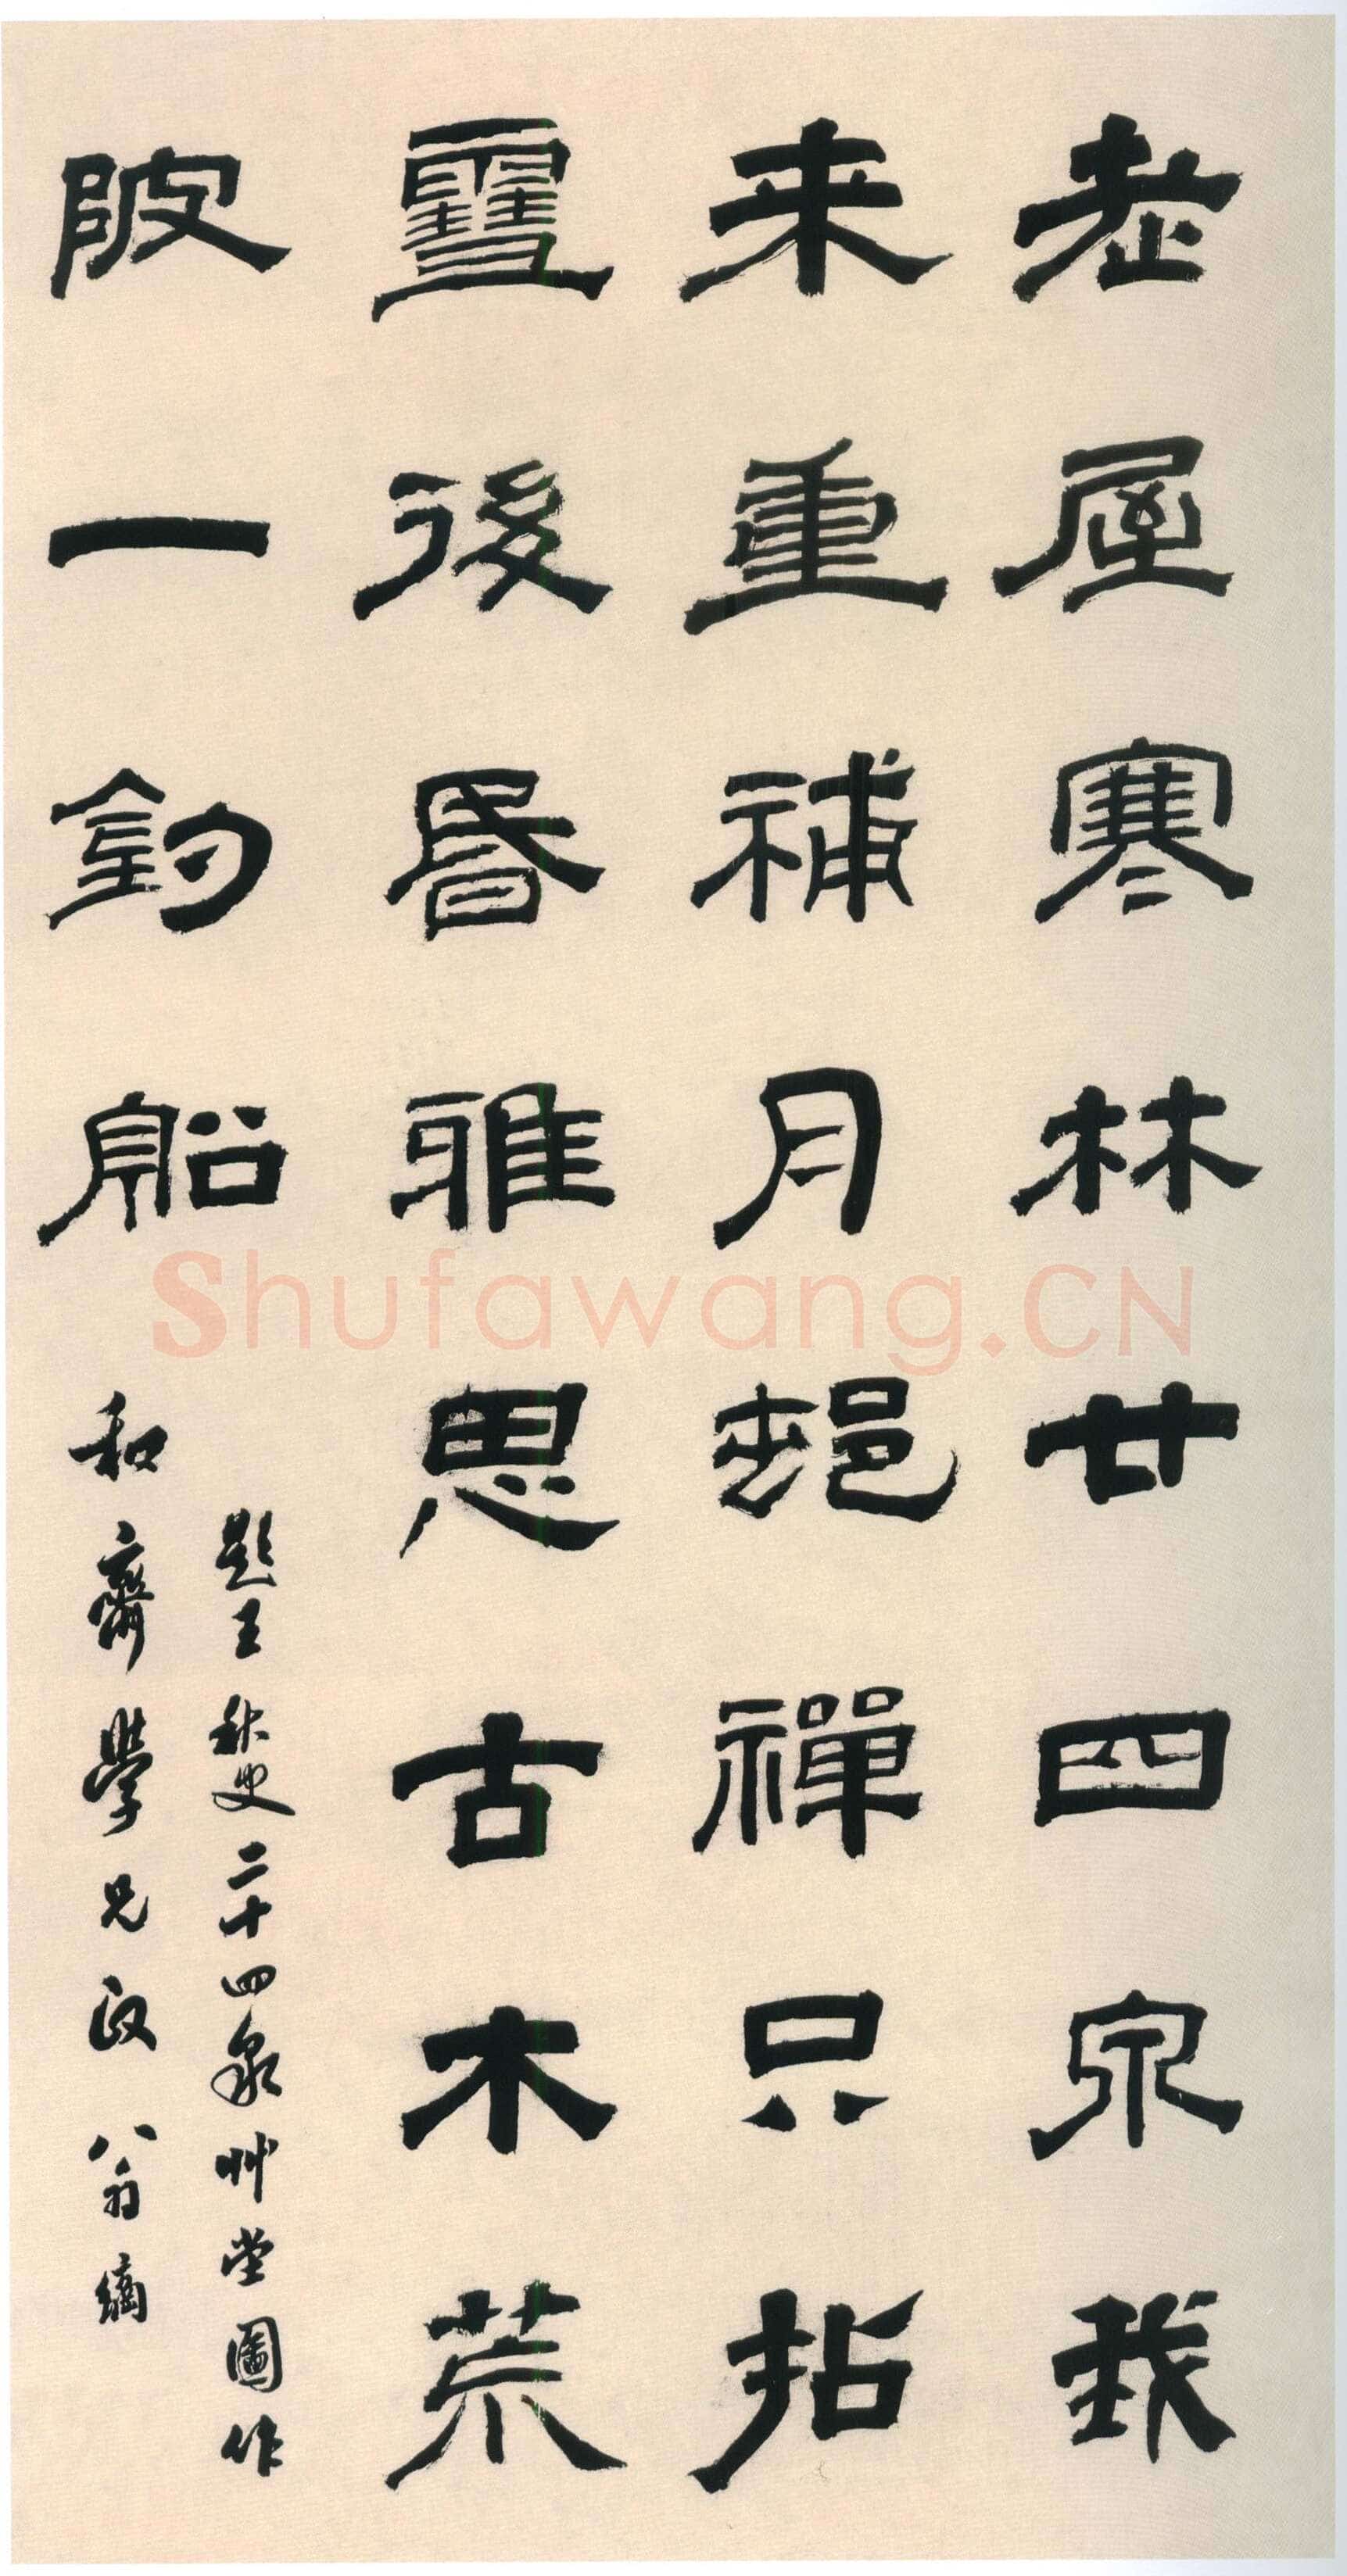 老屋寒林廿四泉我
来重補月禪只拈
雪後昏雅思古木荒
陂一釣船
題王秋史二十四泉艸堂圖作
和齋學兄政 翁
Shufawang.CN